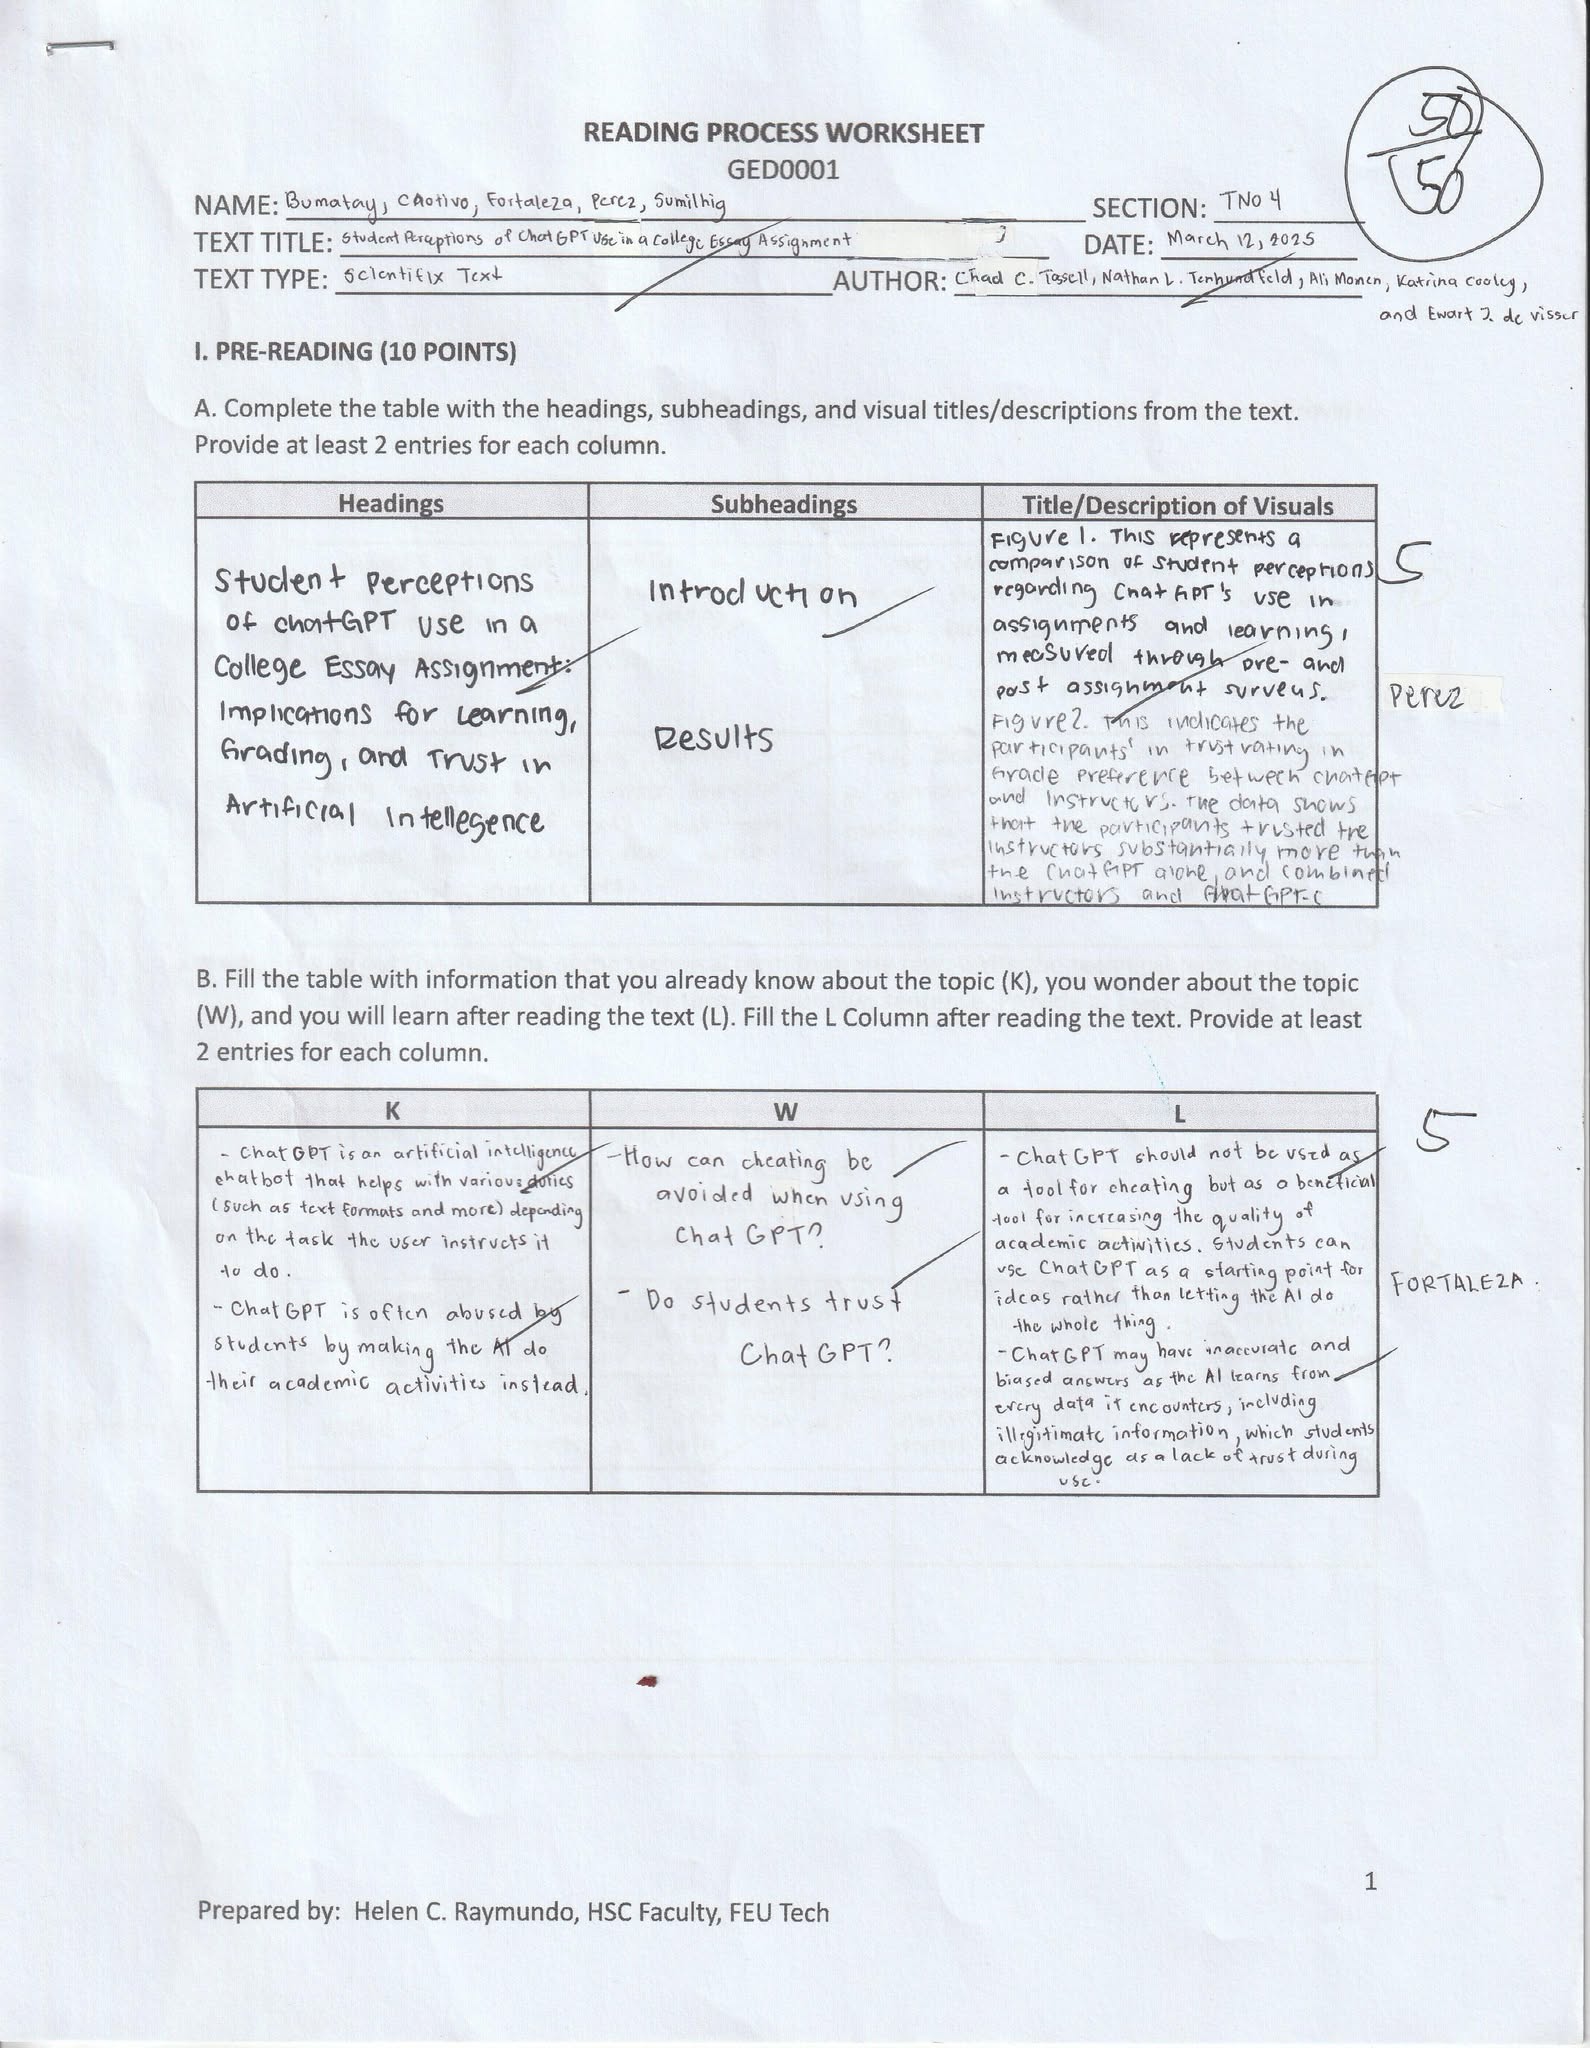 50
50
READING PROCESS WORKSHEET
GED0001
NAME: Bumatay, Caotivo, Fortaleza, Perez, Sumilhig SECTION: TN04
TEXT TITLE: Student Perceptions of ChatGPT Use in a College Essay Assignment DATE: March 12, 2025
TEXT TYPE: Scientifix Text AUTHOR: Chad C. Tossell, Nathan L. Tenhundfeld, Ali Momen, Katrina Cooley,
and Ewart J. de Visser
I. PRE-READING (10 POINTS)
A. Complete the table with the headings, subheadings, and visual titles/descriptions from the text.
Provide at least 2 entries for each column.
Headings
Student Perceptions
of ChatGPT Use in a
College Essay Assignment:
Implications for Learning,
Grading, and Trust in
Artificial Intellegence
Subheadings
Introduction
Results
Title/Description of Visuals
Figure 1. This represents a
comparison of student perceptions
regarding ChatGPT's use in
assignments and learning,
measured through pre- and
post assignment surveys.
Figure 2. This indicates the
participants' in trust rating in
Grade preference between chatGPT
and Instructors. The data shows
that the participants trusted the
instructors substantially more than
the ChatGPT alone, and combined
instructors and ChatGPT-C
5
Perez
B. Fill the table with information that you already know about the topic (K), you wonder about the topic
(W), and you will learn after reading the text (L). Fill the L Column after reading the text. Provide at least
2 entries for each column.
K
- ChatGPT is an artificial intelligence
chatbot that helps with various duties
(such as text formats and more) depending
on the task the user instructs it
to do.
- ChatGPT is often abused by
students by making the AI do
their academic activities instead.
W
- How can cheating be
avoided when using
ChatGPT?
- Do students trust
ChatGPT?
L
- ChatGPT should not be used as
a tool for cheating but as a beneficial
tool for increasing the quality of
academic activities. Students can
use ChatGPT as a starting point for
ideas rather than letting the AI do
the whole thing.
- ChatGPT may have inaccurate and
biased answers as the AI learns from
every data it encounters, including
illegitimate information, which students
acknowledge as a lack of trust during
use.
5
FORTALEZA.
1
Prepared by: Helen C. Raymundo, HSC Faculty, FEU Tech